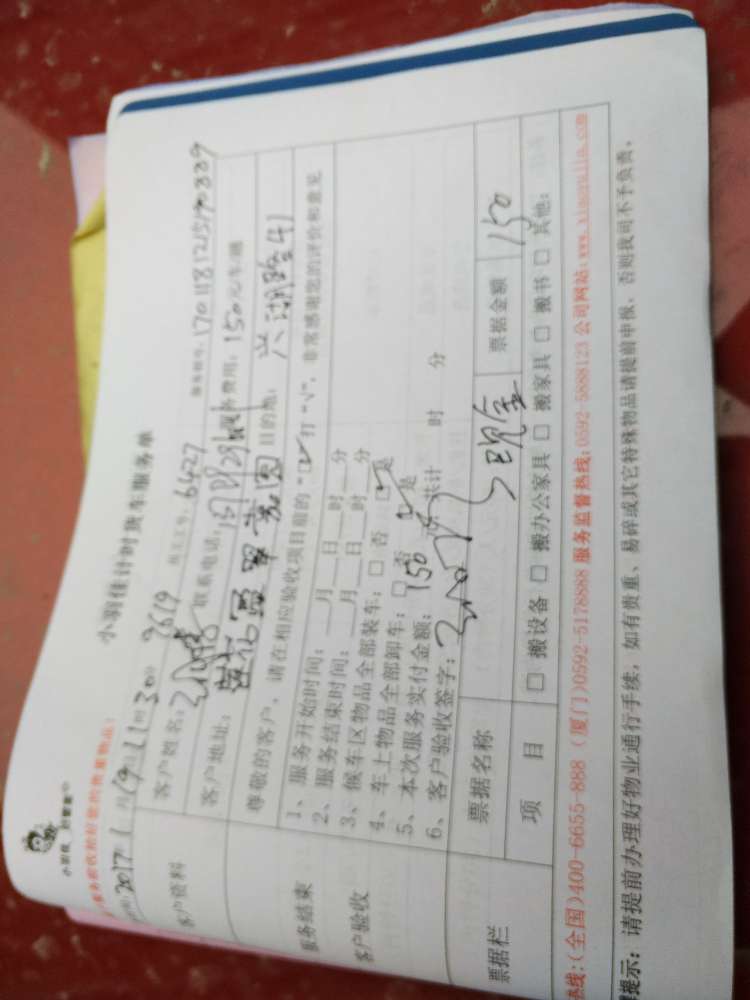 小羽佳计时货车服务单
2017 1月19日11时30分 9619 员工工号：6427 服务单号：1701181215190339
客户资料
客户姓名： 联系电话： 服务费用：150元/车趟
客户地址： 目的地： 兴湖路41
尊敬的客户，请在相应验收项目前的“□”打“√”，非常感谢您的评价和意见
服务结束
客户验收
1、服务开始时间：__月__日__时__分
2、服务结束时间：__月__日__时__分
3、候车区物品全部装车：□ 否 ☑是
4、车上物品全部卸车：□ 否 ☑是
5、本次服务实付金额：150 共计 时 分
6、客户验收签字：
票据栏
票据名称 现金 票据金额 150
项 目 □ 搬设备 □ 搬办公家具 □ 搬家具 □ 搬书 □ 其他：
热线:(全国)400-6655-888 (厦门)0592-5178888 服务监督热线:0592-5888123 公司网站:www.xiaoyujia.com
提示：请提前办理好物业通行手续，如有贵重、易碎或其它特殊物品请提前申报，否则我司不予负责。